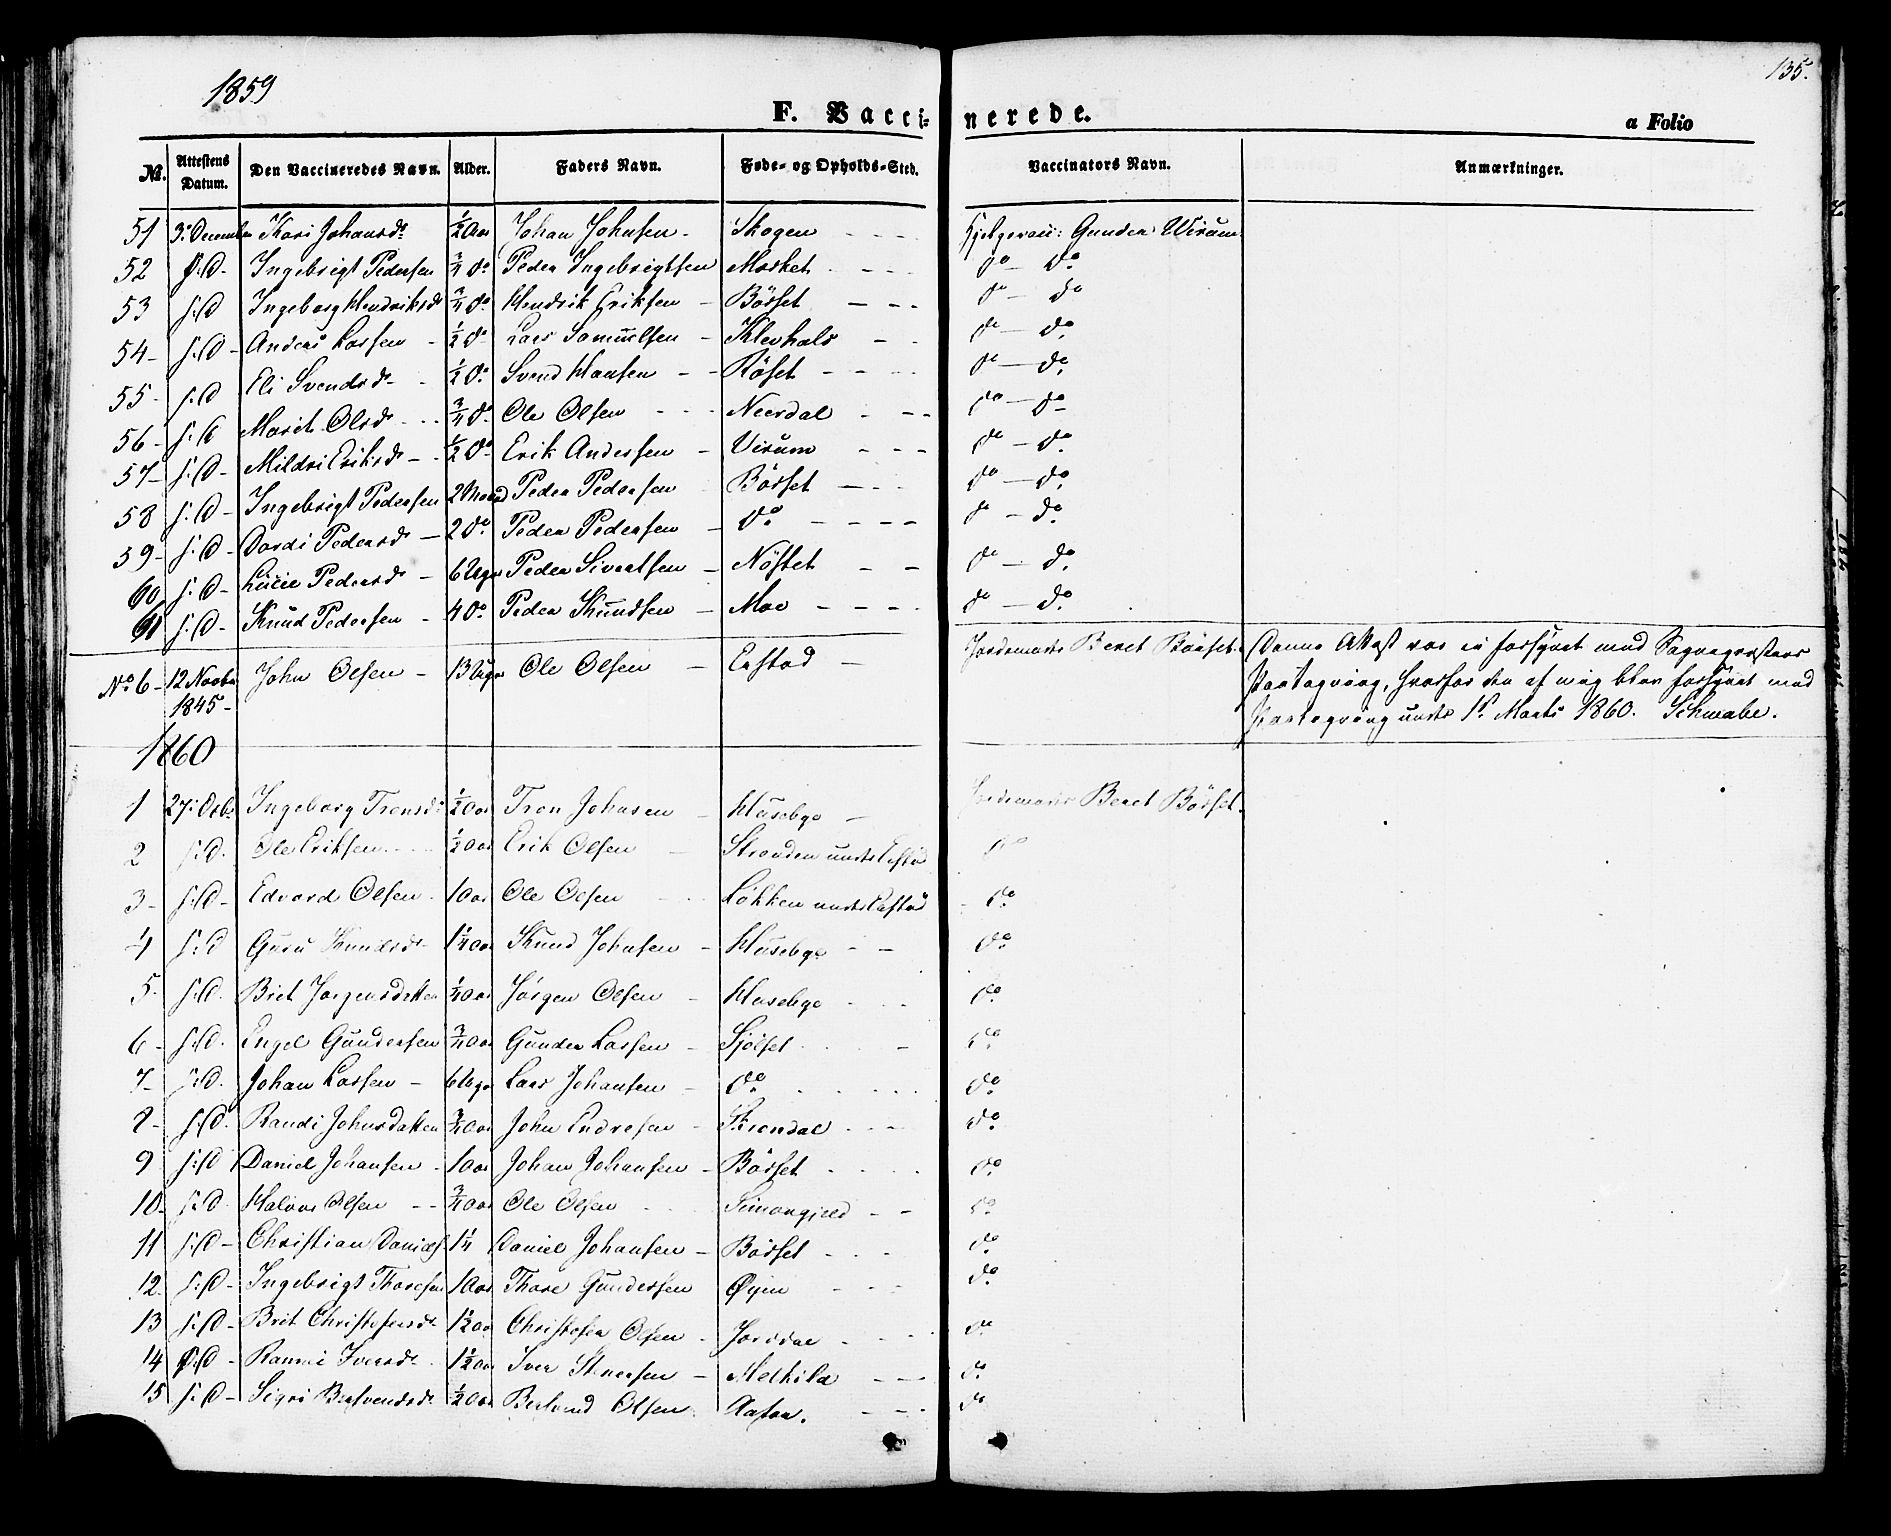 1859
135.
F. Vaccinerede.
a Folio
No. Attestens Datum. Den Vaccineredes Navn. Alder. Faders Navn. Føde- og Opholds-Sted. Vaccinators Navn. Anmærkninger.
51 3 December Kari Johansdr ½ Aar Johan Johnsen - Skogen Gunder Wirum
52 s: D - Ingebrigt Pedersen ¾ do Peder Ingebrigtsen Morket do - do
53 s: D Ingeborg Hendriksdr ¾ do Hendrik Eriksen - Börset do - do
54 - s: D - Anders Larsen - ½ do Lars Samuelsen - Klevhals do - do
55 - s: D Eli Svendsdr ½ do Svend Hansen - Röset do - do
56 - s: D Marit Olsdr ¾ do Ole Olsen Neerdal do - do
57 - s: D - Mildri Eriksdr - ½ do Erik Andersen - Virum do - do
58 s: D - Ingebrigt Pedersen 2 Maaned Peder Pedersen Börset do - do
59 - s: D - Dordi Pedersdr - 2 do Peder Pedersen - do do - do
60 s: D - Lucie Pedersdr - 6 Uger Peder Sivertsen - Nöstet do - do
61 s: D - Knud Pedersen - 4 do Peder Knudsen - Moe do - do
No 6 - 12 Novbr 1845 - John Olsen - 13 Uger Ole Olsen - Erstad - Jordemoder Beret Börset. Denne Attest var ei forsynet med Sogneprestens
Paategning, hvorfor den af mig blev forsynet med
Paategning under 1ste Marts 1860. Schwabe.
1860
1 27 Octbr Ingeborg Tronsdr ½ aar Tron Johnsen - Husebye - Jordemoder Beret Börset.
2 s: D. Ole Eriksen ½ aar Erik Olsen Stranden under Erstad do
3 - s: D - Edvard Olsen 1 aar Ole Olsen Løkken under Erstad do
4 s: D Guru Knudsdr 1¼ aar Knud Johnsen - Husebye do
5 - s: D. Brit Jørgensdatter ¼ aar Jörgen Olsen - Husebye do
6 - s: D. Engel Gundersen ¾ aar Gunder Larsen - Sjölset do
7 - s: D. Johan Larsen - 6 Uger Lars Johansen - do do
8 - s: D. Randi Johnsdatter ¾ aar John Endresen - do
9 s: D Daniel Johansen - 1 aar Johan Johansen - Börset do
10 - s: D Halvor Olsen ¾ aar Ole Olsen do
11 s: D - Christian Daniels. 1¼ Daniel Johansen - Börset do
12. s: D - Ingebrigt Thoresen 1 aar Thore Gundersen Øyen do
13 s: D - Brit Christofersdr 1½ aar Christofer Olsen - Jordal do
14 s: D - Ranni Iversdr 1½ aar Iver - Melhild do
15 s: D - Sigri Bersvendsdr ½ aar Bersvend Olsen do